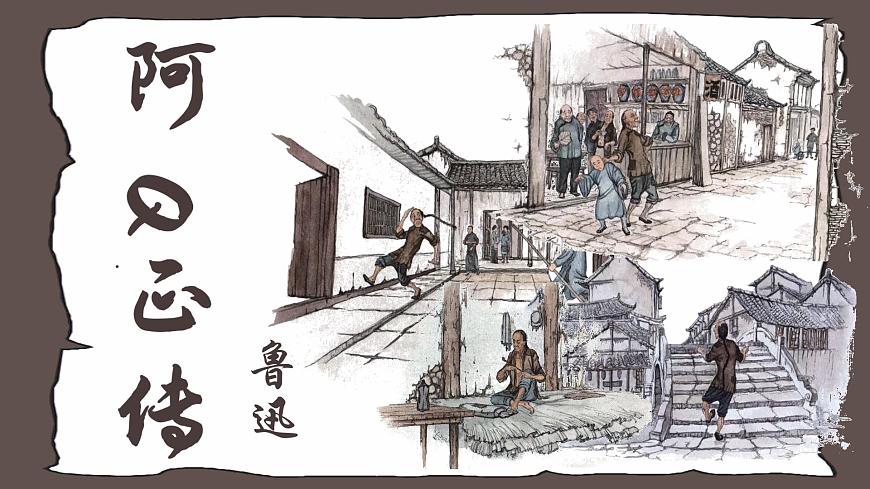 阿Q正传
鲁迅
酒